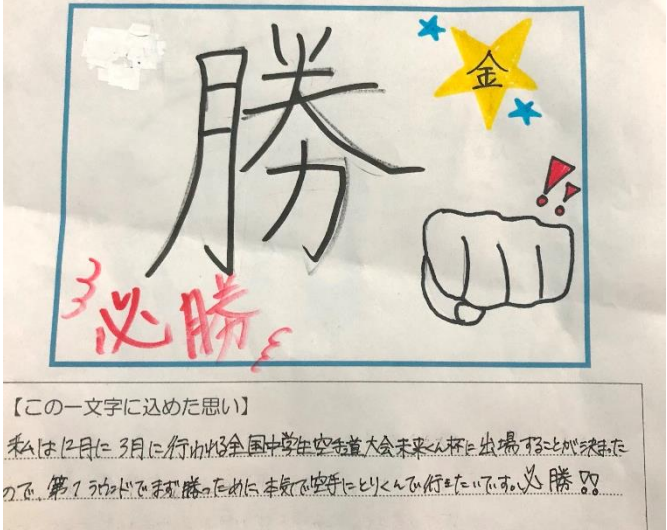 勝
金
必勝
【この一文字に込めた思い】
私は12月に3月に行われる全国中学生空手道大会未来くん杯に出場することが決まった
ので、第1ラウンドでまず勝つために、本気で空手にとりくんで行きたいです。必勝!!